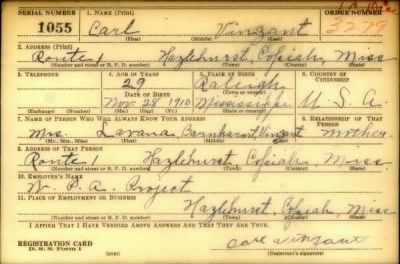 SERIAL NUMBER 1. NAME (Print) ORDER NUMBER
1055 Carl Vinzant 3279
(First) (Middle) (Last)
2. ADDRESS (Print)
Route 1 Hazlehurst, Copiah, Miss
(Number and street or R. F. D. number) (Town) (County) (State)
3. TELEPHONE 4. AGE IN YEARS 5. PLACE OF BIRTH 6. COUNTRY OF CITIZENSHIP
29 Raleigh
DATE OF BIRTH (Town or county)
Nov. 28 1910 Mississippi U. S. A.
(Exchange) (Number) (Mo.) (Day) (Yr.) (State or country)
7. NAME OF PERSON WHO WILL ALWAYS KNOW YOUR ADDRESS RELATIONSHIP OF THAT PERSON
Mrs. Lavana Barnhart Vinzant Mother
(Mr., Mrs., Miss) (First) (Middle) (Last)
ADDRESS OF THAT PERSON
Route 1 Hazlehurst, Copiah, Miss.
(Number and street or R. F. D. number) (Town) (County) (State)
10. EMPLOYER'S NAME
W. P. A. Project
11. PLACE OF EMPLOYMENT OR BUSINESS
Hazlehurst, Copiah, Miss
(Number and street or R. F. D. number) (Town) (County) (State)
I AFFIRM THAT I HAVE VERIFIED ABOVE ANSWERS AND THAT THEY ARE TRUE.
REGISTRATION CARD carl vinzant
D. S. S. Form 1 (over) (Registrant's signature)